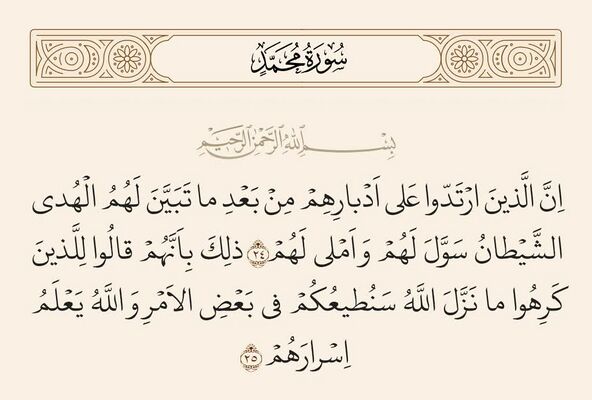 سُورَةُ مُحَمَّدٍ
بِسْمِ اللهِ الرَّحْمٰنِ الرَّحِيمِ
اِنَّ الَّذينَ ارْتَدّوا عَلى اَدْبارِهِمْ مِنْ بَعْدِ ما تَبَيَّنَ لَهُمُ الْهُدى
الشَّيْطانُ سَوَّلَ لَهُمْ وَ اَمْلى لَهُمْ ﴿٢٤﴾ ذلِكَ بِاَنَّهُمْ قالُوا لِلَّذينَ
كَرِهُوا ما نَزَّلَ اللَّهُ سَنُطيعُكُمْ فى بَعْضِ الاَمْرِ وَ اللَّهُ يَعْلَمُ
اِسْرارَهُمْ ﴿٢٥﴾